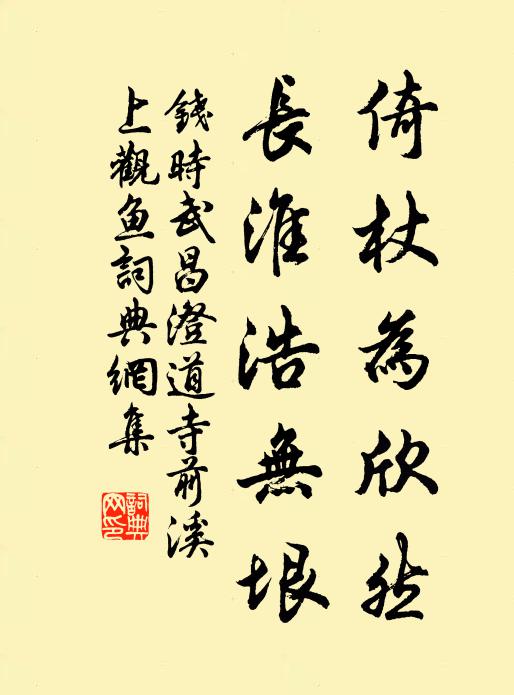 倚杖為欣然
長淮浩無垠
錢時武昌澄道寺前溪
上觀魚詞典網集
詞典
网印